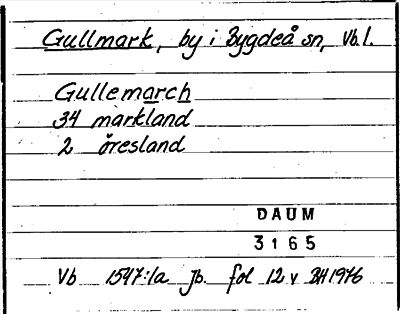 Gullmark, by i Bygdeå sn, Vb.l.
Gullemarch
34 markland
2 öresland
DAUM
3165
Vb 1547:1a Jb. fol 12 v BH 1976